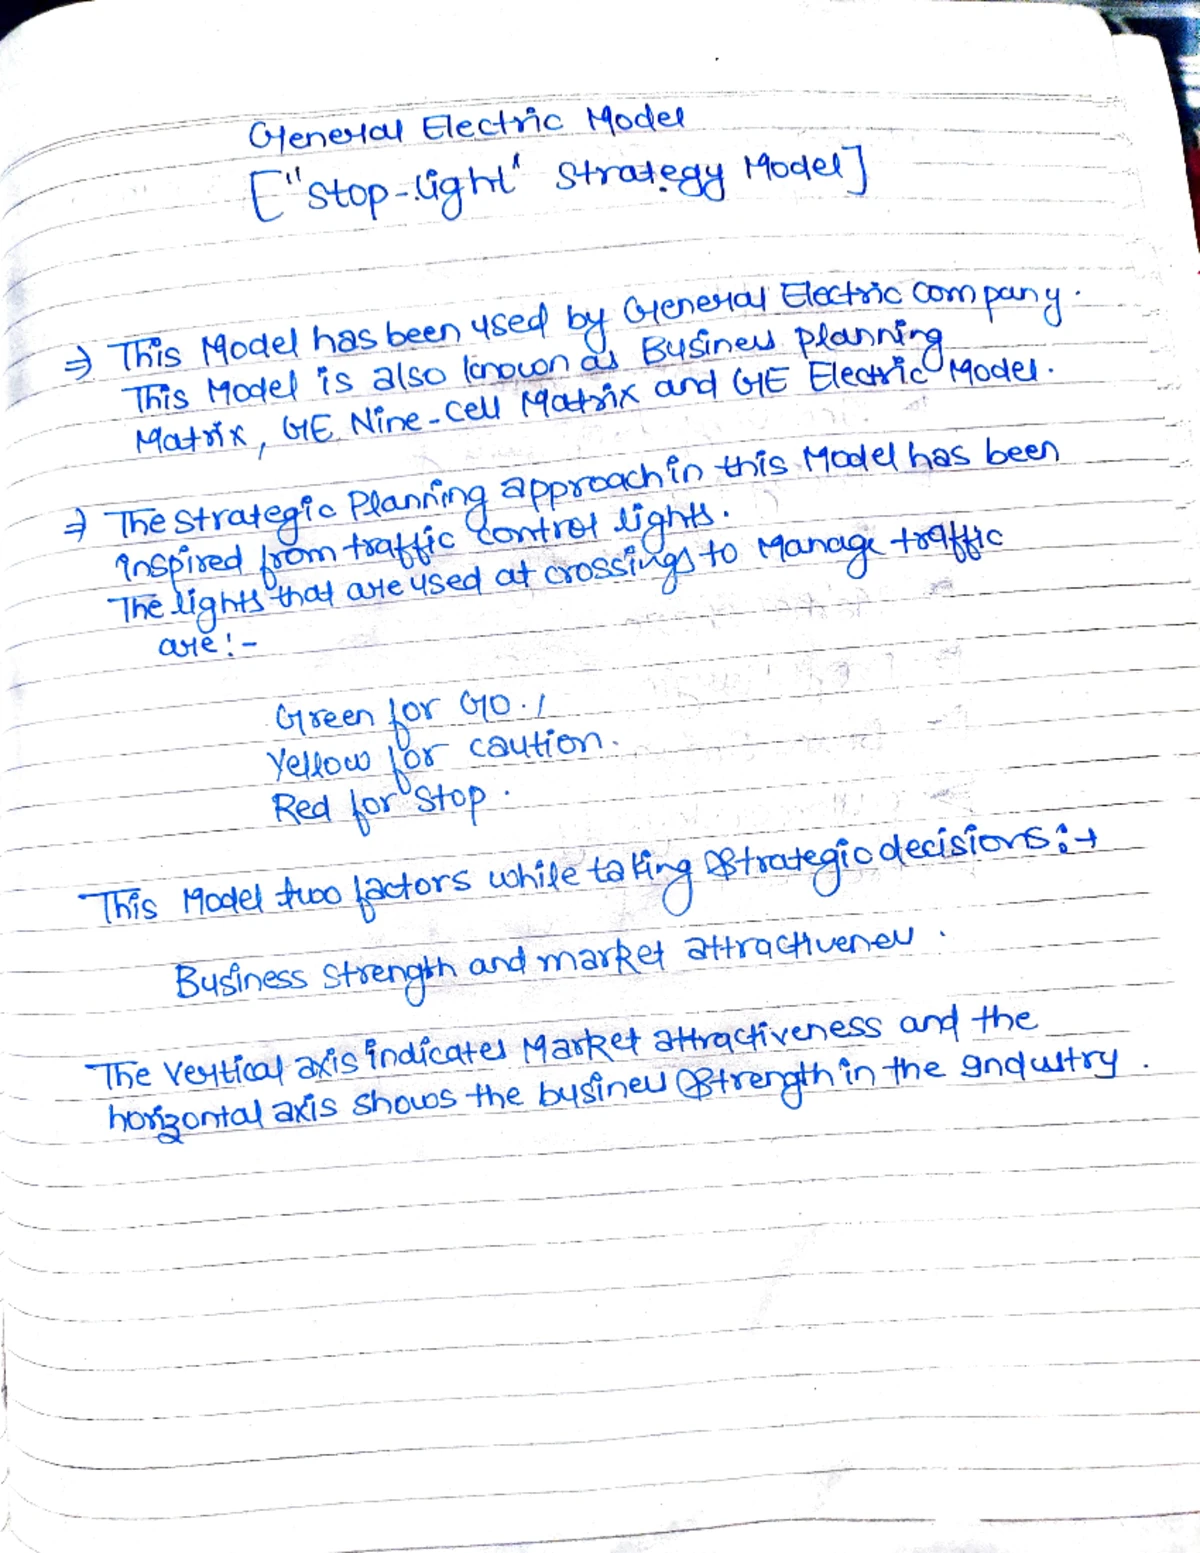 General Electric Model
["Stop-light" Strategy Model]
⇒ This Model has been used by General Electric Company.
This Model is also known as Business planning
Matrix, GE Nine-Cell Matrix and GE Electric Model.
⇒ The Strategic Planning approach in this Model has been
inspired from traffic control lights.
The lights that are used at crossings to Manage traffic
are:-
Green for GO.
Yellow for caution.
Red for Stop.
This Model two factors while taking Strategic decisions:→
Business Strength and market attractiveness.
The Vertical axis indicates Market attractiveness and the
horizontal axis shows the business Strength in the Industry.